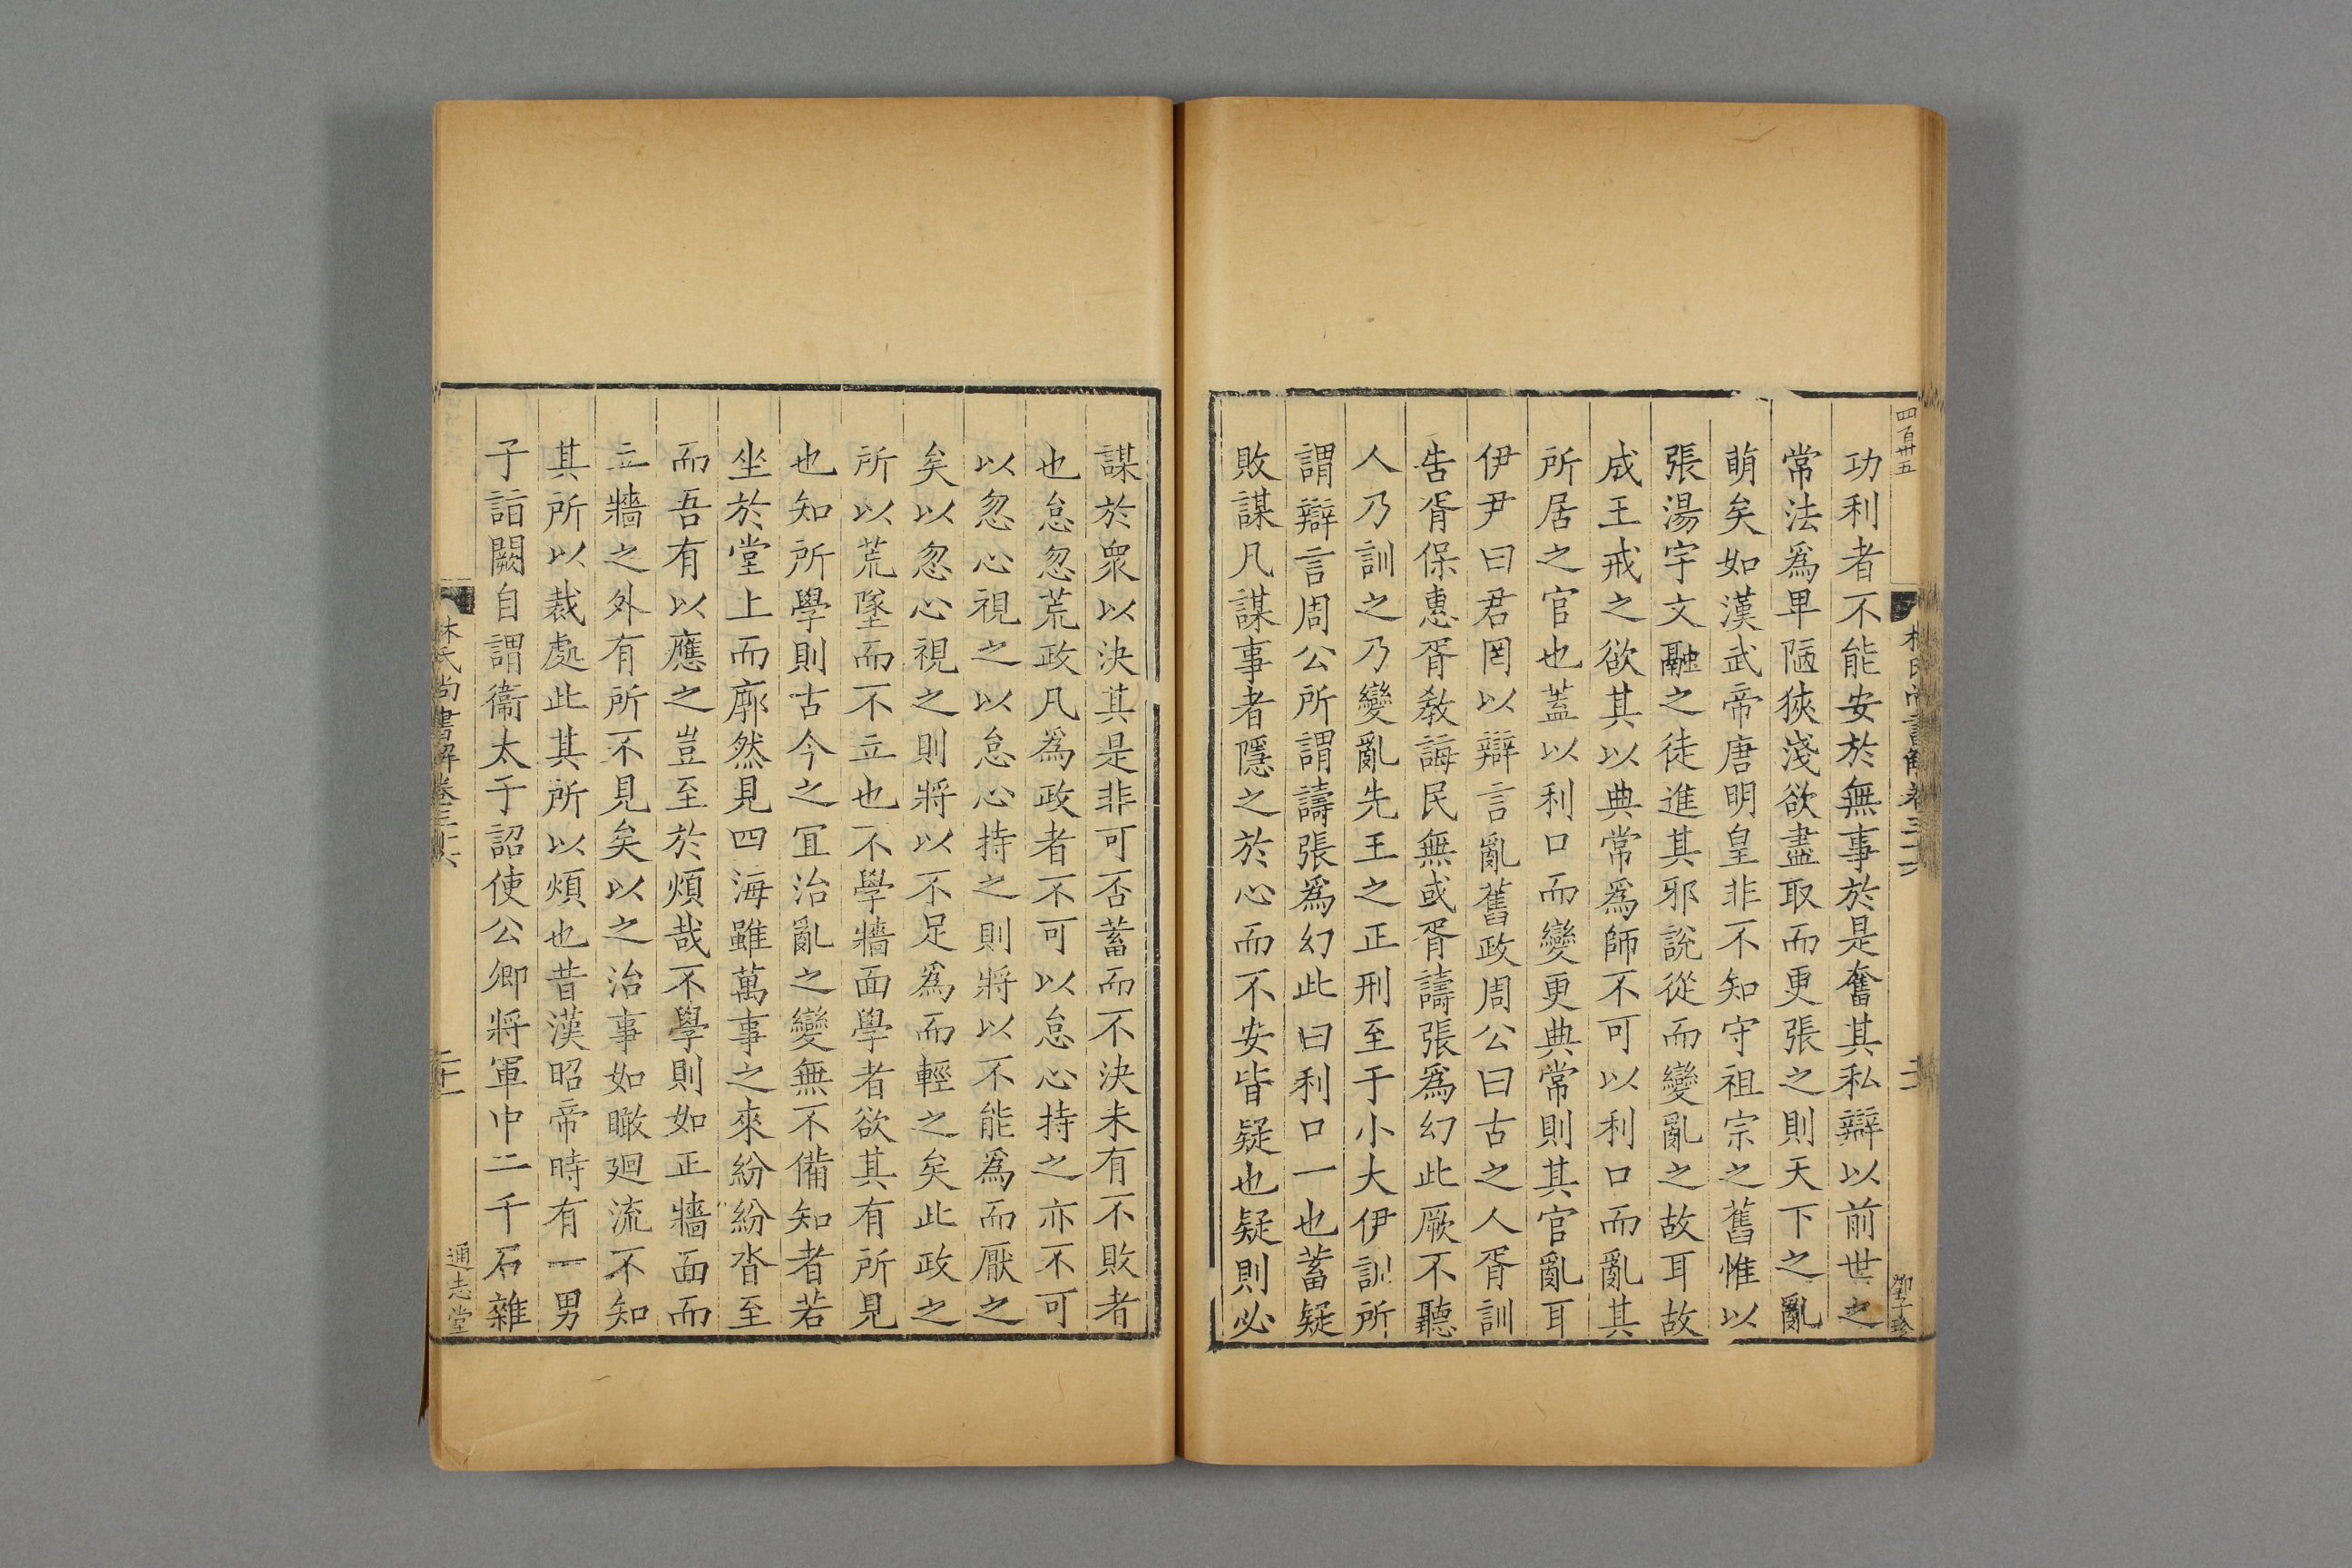 四百卅五
林氏尚書解卷三十六
鄧子珍
功利者不能安於無事於是奮其私辯以前世之
常法爲卑陋狹淺欲盡取而更張之則天下之亂
萌矣如漢武帝唐明皇非不知守祖宗之舊惟以
張湯宇文融之徒進其邪說從而變亂之故耳故
成王戒之欲其以典常爲師不可以利口而亂其
所居之官也蓋以利口而變更典常則其官亂耳
伊尹曰君罔以辯言亂舊政周公曰古之人胥訓
告胥保惠胥敎誨民無或胥譸張爲幻此厥不聽
人乃訓之乃變亂先王之正刑至于小大伊訓所
謂辯言周公所謂譸張爲幻此曰利口一也蓄疑
敗謀凡謀事者隱之於心而不安皆疑也疑則必
謀於衆以決其是非可否蓄而不決未有不敗者
也怠忽荒政凡爲政者不可以怠心持之亦不可
以忽心視之以怠心持之則將以不能爲而厭之
矣以忽心視之則將以不足爲而輕之矣此政之
所以荒墜而不立也不學牆面學者欲其有所見
也知所學則古今之宜治亂之變無不備知者若
坐於堂上而廓然見四海雖萬事之來紛紛沓至
而吾有以應之豈至於煩哉不學則如正牆面而
立牆之外有所不見矣以之治事如瞰廻流不知
其所以裁處此其所以煩也昔漢昭帝時有一男
子詣闕自謂衞太于詔使公卿將軍中二千石雜
林氏尚書解卷三十六
通志堂